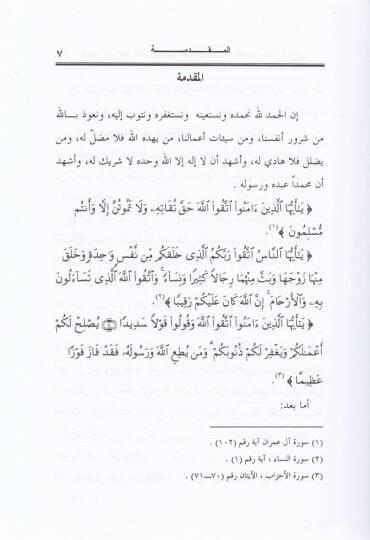 المـقـدمـــة ٧
المقدمة
إن الحمد لله نحمده ونستعينه ونستغفره ونتوب إليه، ونعوذ بـالله
من شرور أنفسنا، ومن سيئات أعمالنا، من يهده الله فلا مضلّ له، ومن
يضلل فلا هادي له، وأشهد أن لا إله إلا الله وحده لا شريك له، وأشهد
أن محمداً عبده ورسوله .
﴿ يَٰٓأَيُّهَا ٱلَّذِينَ ءَامَنُوا۟ ٱتَّقُوا۟ ٱللَّهَ حَقَّ تُقَاتِهِۦ وَلَا تَمُوتُنَّ إِلَّا وَأَنتُم
مُّسْلِمُونَ ﴾(١).
﴿ يَٰٓأَيُّهَا ٱلنَّاسُ ٱتَّقُوا۟ رَبَّكُمُ ٱلَّذِى خَلَقَكُم مِّن نَّفْسٍ وَٰحِدَةٍ وَخَلَقَ
مِنْهَا زَوْجَهَا وَبَثَّ مِنْهُمَا رِجَالًا كَثِيرًا وَنِسَآءً ۚ وَٱتَّقُوا۟ ٱللَّهَ ٱلَّذِى تَسَآءَلُونَ
بِهِۦ وَٱلْأَرْحَامَ ۚ إِنَّ ٱللَّهَ كَانَ عَلَيْكُمْ رَقِيبًا ﴾(٢).
﴿ يَٰٓأَيُّهَا ٱلَّذِينَ ءَامَنُوا۟ ٱتَّقُوا۟ ٱللَّهَ وَقُولُوا۟ قَوْلًا سَدِيدًا ۝٧٠ يُصْلِحْ لَكُمْ
أَعْمَٰلَكُمْ وَيَغْفِرْ لَكُمْ ذُنُوبَكُمْ ۗ وَمَن يُطِعِ ٱللَّهَ وَرَسُولَهُۥ فَقَدْ فَازَ فَوْزًا
عَظِيمًا ﴾(٣).
أما بعد:
(١) سورة آل عمران آية رقم (١٠٢) .
(٢) سورة النساء ، آية رقم (١) .
(٣) سورة الأحزاب ، الآيتان رقم (٧٠ــ٧١) .